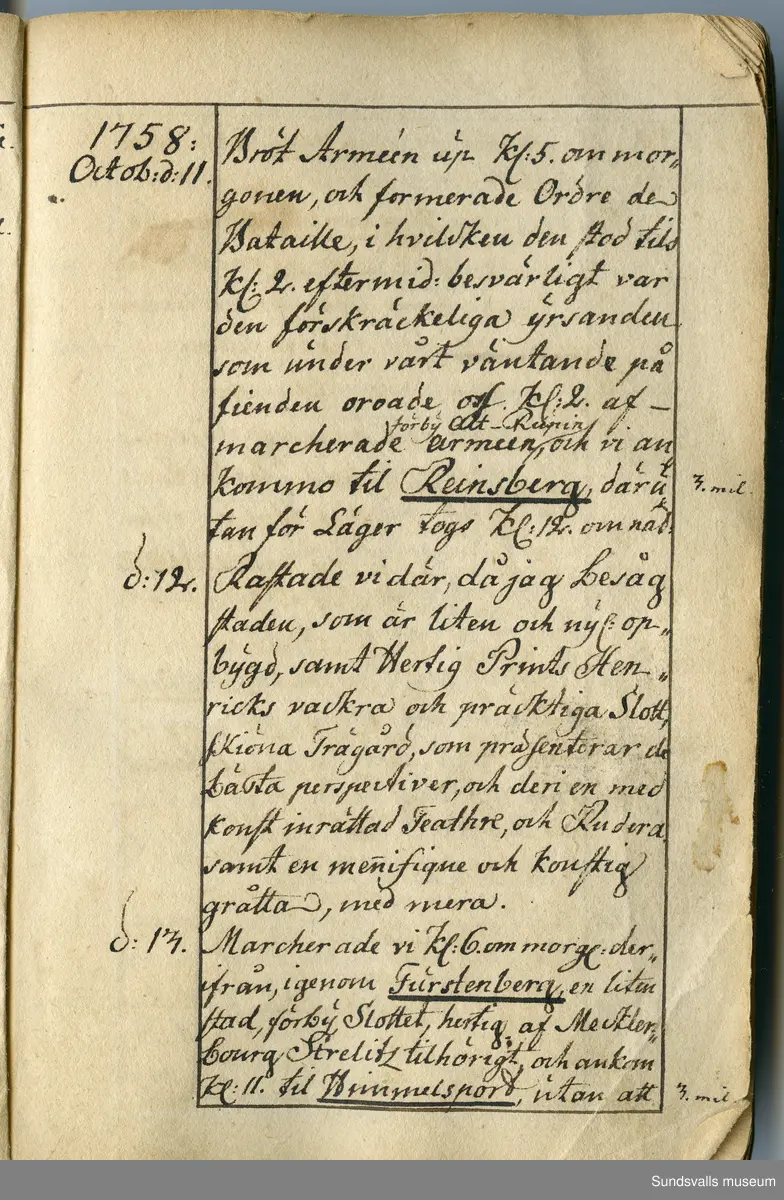 1758:
Octob:d:11.
Bröt Arméen up Kl:5. om mor„
gonen, och formerade Ordre de
Bataille, i hvilsken den stod tils
Kl: 2. eftermid: besvärligt var
den förskräckeliga yrsanden
som under vårt väntande på
fienden oroade oss. Kl: 2. af-
förby Alt-Rupin
marcherade armeen, och vi an
kommo til Reinsberg, där u 3. mil.
tan för Läger togs Kl:12. om nat:
d:12. Rastade vi där, då jag besåg
staden, som är liten och nyl: op„
bygd, samt Hertig Prints Hen„
ricks vackra och präcktiga Slott,
skiöna Trägård, som präsenterar de
bästa perspectiver, och deri en med
konst inrättad Teathre, och Rudera
samt en menifique och konstig
gråtta, med mera.
d: 13. Marcherade vi Kl:6. om morg: der„
ifrån, igenom Fürstenberg, en liten
stad, förby Slottet, hertig af Mecklen„
bourg Strelitz tilhörigt, och ankom
Kl: 11. til Himmelsport, utan att 3. mil.
Sundsvalls museum